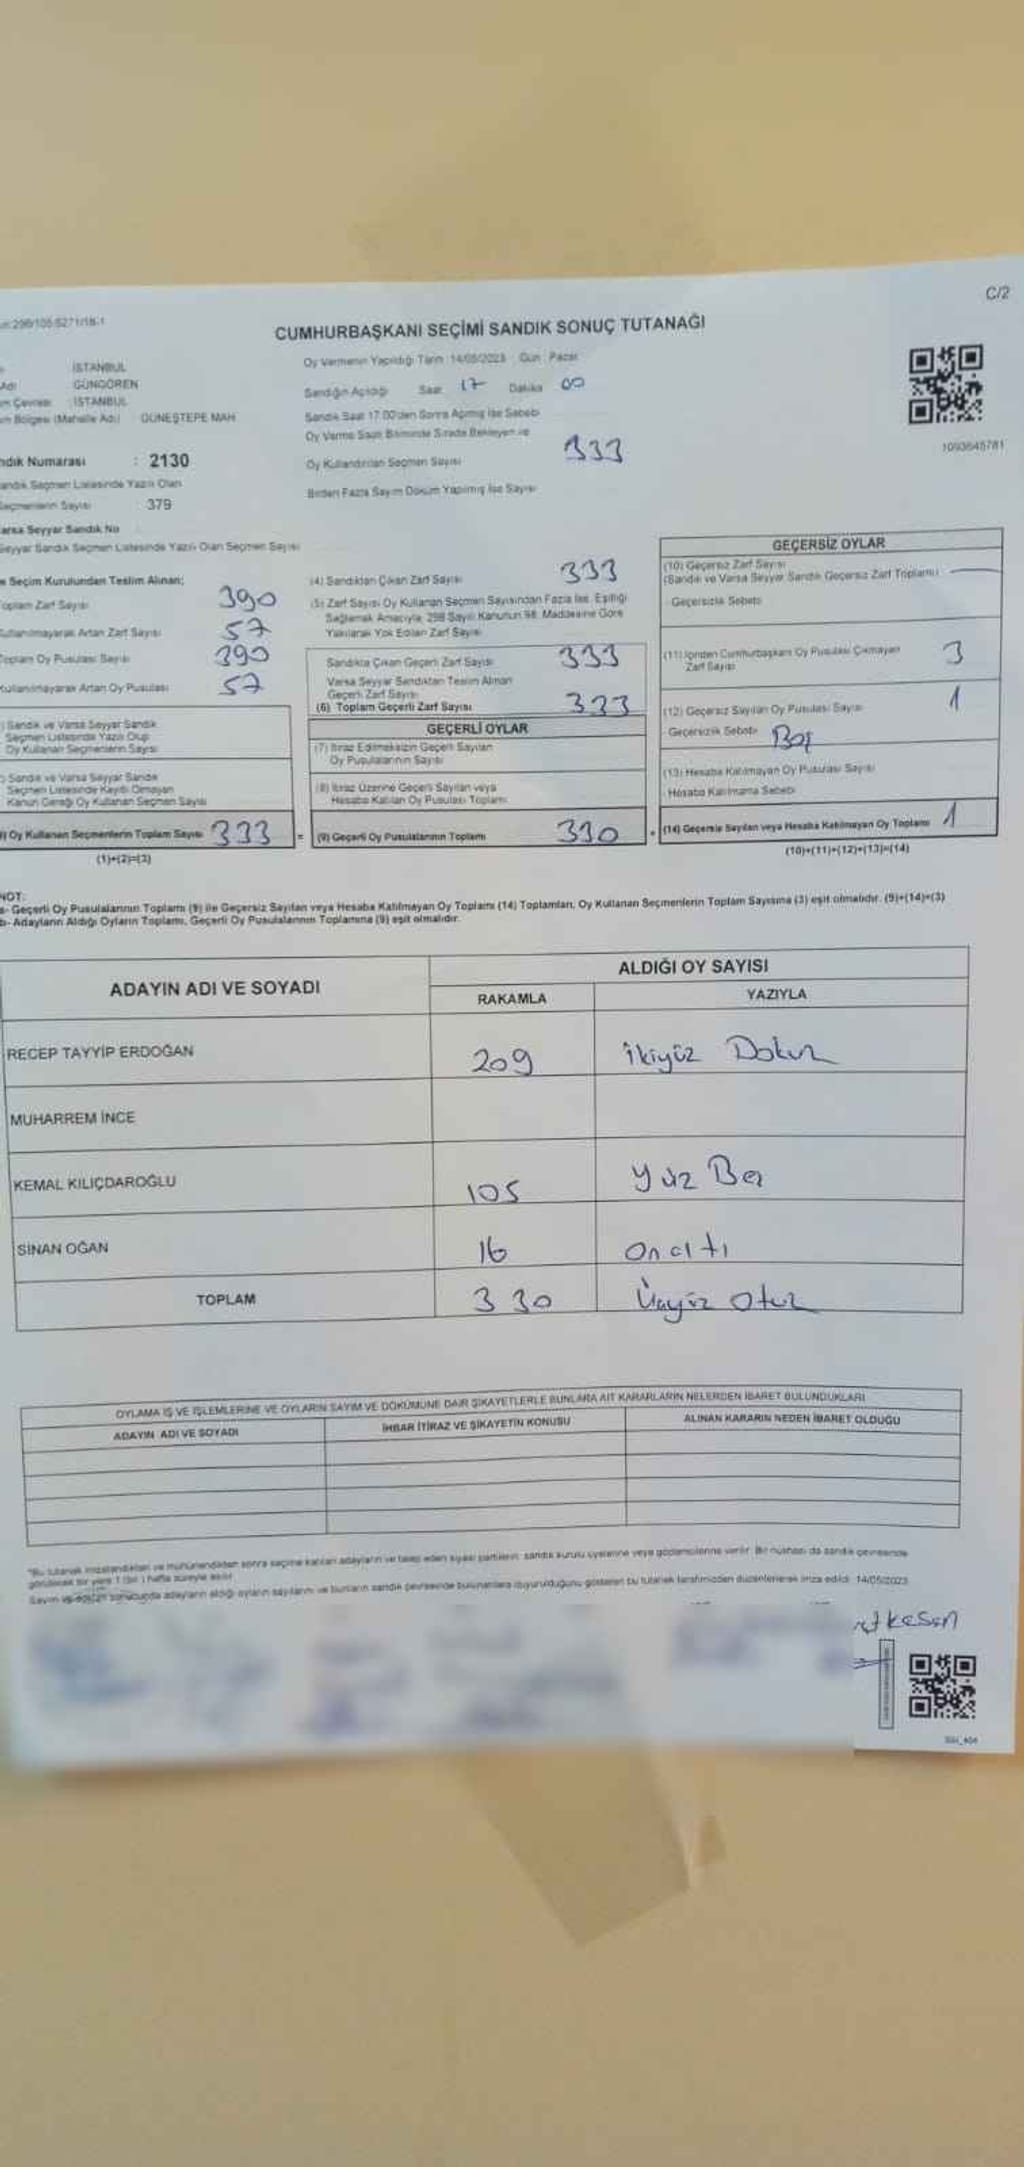 C/2
CUMHURBAŞKANI SEÇİMİ SANDIK SONUÇ TUTANAĞI
İSTANBUL
Oy Vermenin Yapıldığı Tarih : 14/05/2023 Gün : Pazar
Adı GÜNGÖREN
m Çevresi : İSTANBUL
Sandığın Açıldığı Saat 17 Dakika 00
m Bölgesi (Mahalle Adı) GÜNEŞTEPE MAH
Sandık Saat 17:00'den Sonra Açılmış İse Sebebi
Oy Verme Saati Bitiminde Sırada Bekleyen ve
Oy Kullandırılan Seçmen Sayısı 333
1093645781
ndık Numarası : 2130
andık Seçmen Listesinde Yazılı Olan
Seçmenlerin Sayısı 379
Birden Fazla Sayım Döküm Yapılmış İse Sayısı
arsa Seyyar Sandık No
Seyyar Sandık Seçmen Listesinde Yazılı Olan Seçmen Sayısı
e Seçim Kurulundan Teslim Alınan;
oplam Zarf Sayısı 390
ullanılmayarak Artan Zarf Sayısı 57
Toplam Oy Pusulası Sayısı 390
Kullanılmayarak Artan Oy Pusulası 57
) Sandık ve Varsa Seyyar Sandık
Seçmen Listesinde Yazılı Olup
Oy Kullanan Seçmenlerin Sayısı
) Sandık ve Varsa Seyyar Sandık
Seçmen Listesinde Kaydı Olmayan
Kanun Gereği Oy Kullanan Seçmen Sayısı
) Oy Kullanan Seçmenlerin Toplam Sayısı 333
(1)+(2)=(3)
(4) Sandıktan Çıkan Zarf Sayısı 333
(5) Zarf Sayısı Oy Kullanan Seçmen Sayısından Fazla İse, Eşitliği
Sağlamak Amacıyla, 298 Sayılı Kanunun 98. Maddesine Göre
Yakılarak Yok Edilen Zarf Sayısı
Sandıkta Çıkan Geçerli Zarf Sayısı 333
Varsa Seyyar Sandıktan Teslim Alınan
Geçerli Zarf Sayısı
(6) Toplam Geçerli Zarf Sayısı 333
GEÇERLİ OYLAR
(7) İtiraz Edilmeksizin Geçerli Sayılan
Oy Pusulalarının Sayısı
(8) İtiraz Üzerine Geçerli Sayılan veya
Hesaba Katılan Oy Pusulası Toplamı
= (9) Geçerli Oy Pusulalarının Toplamı 330
GEÇERSİZ OYLAR
(10) Geçersiz Zarf Sayısı
(Sandık ve Varsa Seyyar Sandık Geçersiz Zarf Toplamı)
Geçersizlik Sebebi
(11) İçinden Cumhurbaşkanı Oy Pusulası Çıkmayan
Zarf Sayısı 3
(12) Geçersiz Sayılan Oy Pusulası Sayısı 1
Geçersizlik Sebebi Boş
(13) Hesaba Katılmayan Oy Pusulası Sayısı
Hesaba Katılmama Sebebi
+ (14) Geçersiz Sayılan veya Hesaba Katılmayan Oy Toplamı 1
(10)+(11)+(12)+(13)=(14)
NOT:
a- Geçerli Oy Pusulalarının Toplamı (9) ile Geçersiz Sayılan veya Hesaba Katılmayan Oy Toplamı (14) Toplamları, Oy Kullanan Seçmenlerin Toplam Sayısına (3) eşit olmalıdır. (9)+(14)=(3)
b- Adayların Aldığı Oyların Toplamı, Geçerli Oy Pusulalarının Toplamına (9) eşit olmalıdır.
ADAYIN ADI VE SOYADI
ALDIĞI OY SAYISI
RAKAMLA YAZIYLA
RECEP TAYYİP ERDOĞAN 209 ikiyüz Dokuz
MUHARREM İNCE
KEMAL KILIÇDAROĞLU 105 Yüz Beş
SİNAN OĞAN 16 Onaltı
TOPLAM 330 Üçyüz Otuz
OYLAMA İŞ VE İŞLEMLERİNE VE OYLARIN SAYIM VE DÖKÜMÜNE DAİR ŞİKAYETLERLE BUNLARA AİT KARARLARIN NELERDEN İBARET BULUNDUKLARI
ADAYIN ADI VE SOYADI İHBAR İTİRAZ VE ŞİKAYETİN KONUSU ALINAN KARARIN NEDEN İBARET OLDUĞU
*Bu tutanak imzalandıktan ve mühürlendikten sonra seçime katılan adayların ve talep eden siyasi partilerin, sandık kurulu üyelerine veya gözlemcilerine verilir. Bir nüshası da sandık çevresinde
görülecek bir yere 1 (bir) hafta süreyle asılır.
Sayım ve döküm sonucunda adayların aldığı oyların sayılarını ve bunların sandık çevresinde bulunanlara duyurulduğunu gösteren bu tutanak tarafımızdan düzenlenerek imza edildi. 14/05/2023